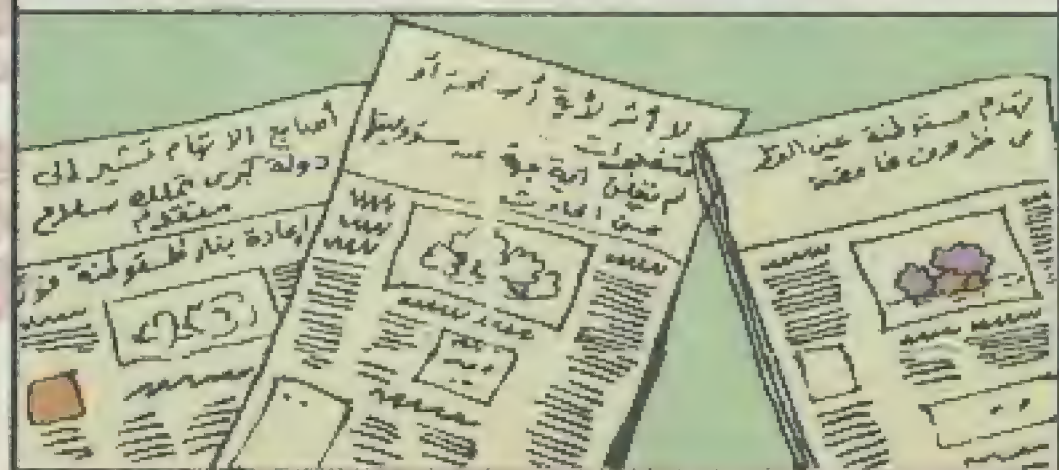 تهدم مستوطنة عين القط
في ظروف غامضة
لا أثر لأية أسلحة أو
متفجرات
لم تعلن أية جهة عن مسؤوليتها
عن الحادث
أصابع الاتهام تشير إلى
دولة كبرى تملك سلاح
متقدم
إعادة بناء المستوطنة فورًا